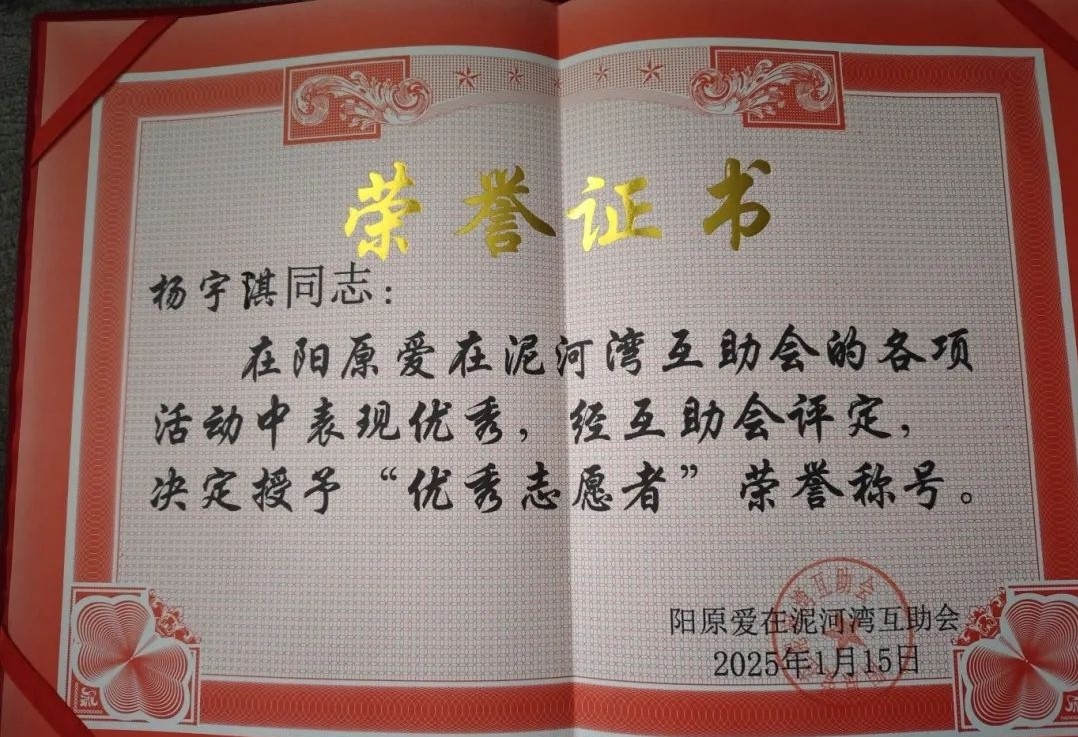 荣誉证书
杨宇淇同志：
在阳原爱在泥河湾互助会的各项
活动中表现优秀，经互助会评定，
决定授予“优秀志愿者”荣誉称号。
阳原爱在泥河湾互助会
2025年1月15日
湾互助会